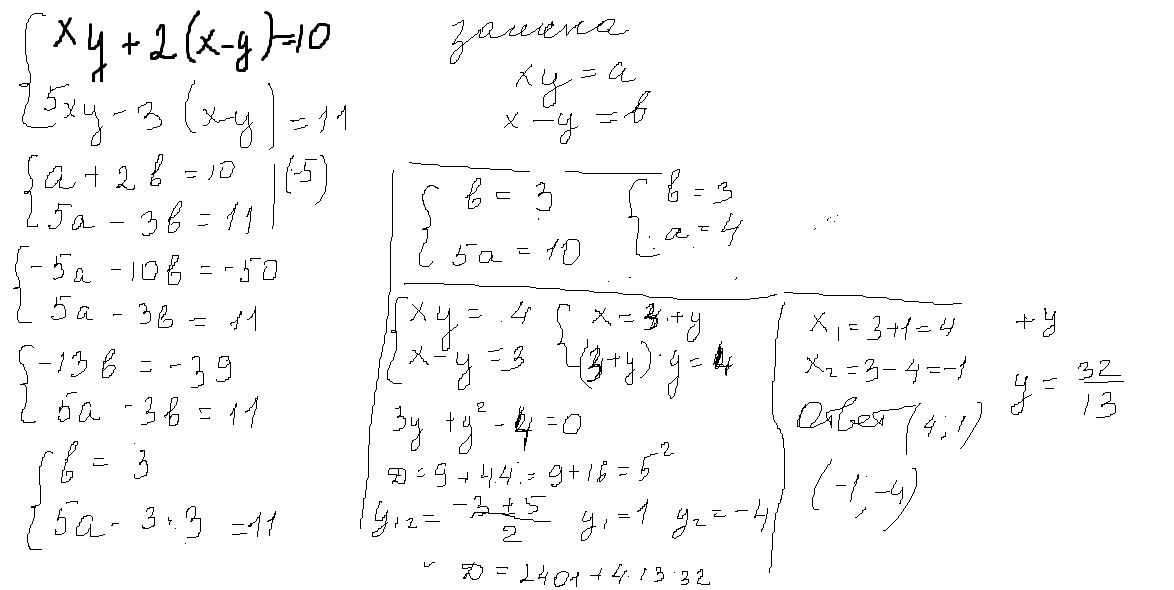 xy + 2(x-y) = 10
5xy - 3(x-y) = 11
замена
xy = a
x - y = b
a + 2b = 10 | (-5)
5a - 3b = 11
-5a - 10b = -50
5a - 3b = 11
-13b = -39
5a - 3b = 11
b = 3
5a - 3·3 = 11
b = 3
5a = 10
b = 3
a = 4
xy = 4
x - y = 3
x = 3 + y
(3+y)·y = 4
3y + y² - 4 = 0
D = 9 + 4·4 = 9 + 16 = 5²
y₁,₂ = (-3 ± 5)/2 y₁ = 1 y₂ = -4
D = 2401 + 4·13·32
x₁ = 3+1 = 4
x₂ = 3-4 = -1
Ответ (4; 1)
(-1; -4)
+y
y = 32/13